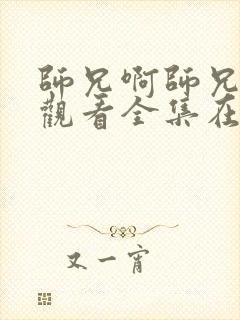 師兄啊師兄
觀看全集在
又一宵